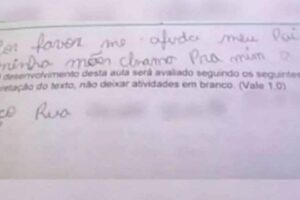 Por favor me ajuda meu Pai
minha mães chamo Pra mim o
desenvolvimento desta aula será avaliado seguindo os seguintes
retação do texto, não deixar atividades em branco. (Vale 1.0)
ço Rua